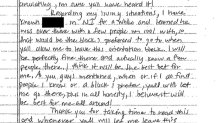 annually, I'm sure you have heard it!
Regarding my living situation, I have
known in NJ for a while and learned he
was over there with a few people I'm cool with, so
that would be the block I preferred to go to when
yall allow me to leave this orientation block. I will
be perfectly fine there and actually know a few
people there. I think it will be the best bet for
me. As you guys mentioned, when or if I go find
people I know or a block I prefer, yall will let
me go there, but in all honesty, I believe it will
be best for me all around!
Thank you for taking time to read this
and whenever yall will let me leave this